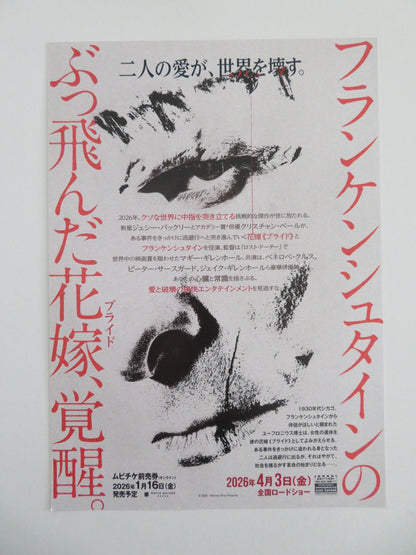 二人の愛が、世界を壊す。
フランケンシュタインの
ぶっ飛んだ花嫁、覚醒。
ブライド
2026年、クソな世界に中指を突き立てる挑戦的な傑作が世に放たれる。
新星ジェシー・バックリーとアカデミー賞®俳優クリスチャン・ベールが、
ある事件をきっかけに逃避行へと突き進んでいく花嫁《ブライド》と
フランケンシュタインを怪演。監督は『ロスト・ドーター』で
世界中の映画賞を賑わせたマギー・ギレンホール。共演は、ペネロペ・クルス、
ピーター・サースガード、ジェイク・ギレンホールら豪華俳優陣。
あなたの心臓と常識を揺さぶる、
愛と破壊の
エンタテインメントを見逃すな。
1930年代シカゴ。
フランケンシュタインから
伴侶がほしいと頼まれた
ユーフロニウス博士は、女性の遺体を
彼の花嫁《ブライド》としてよみがえらせる。
ある事件をきっかけに追われる身となった
二人は逃避行に出るが、それはやがて、
社会を揺るがす革命の始まりとなる――。
ムビチケ前売券(オンライン)
2026年1月16日(金)
発売予定
2026年4月3日(金)
全国ロードショー